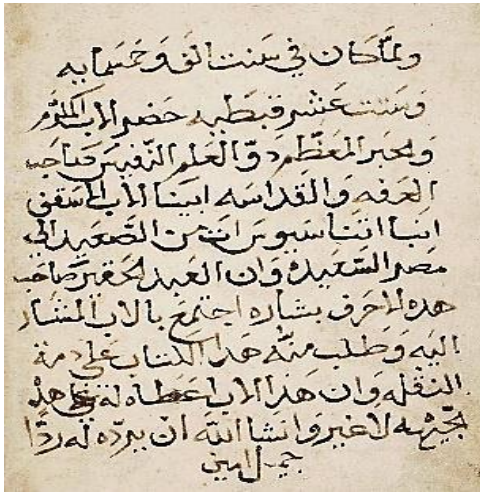 ولما كان في سنت الف وخمسمايه
وستت عشر قبطيه حضر الاب المكرم
والحبر المعظم ذو العلم النفيس صاحب
العفه والقداسه ابينا الاب الاسقف
انبا اتناسيوس من الصعيد الي
مصر السعيده وان العبد الحقير صاحب
هده الاحرف بشاره اجتمع بالاب المشار
اليه وطلب منه هدا الكتاب علي دمة
النقله وان هذا الاب اعطاه له علي هده
لا غير وانشا الله ان يرده له ردا
جميل امين